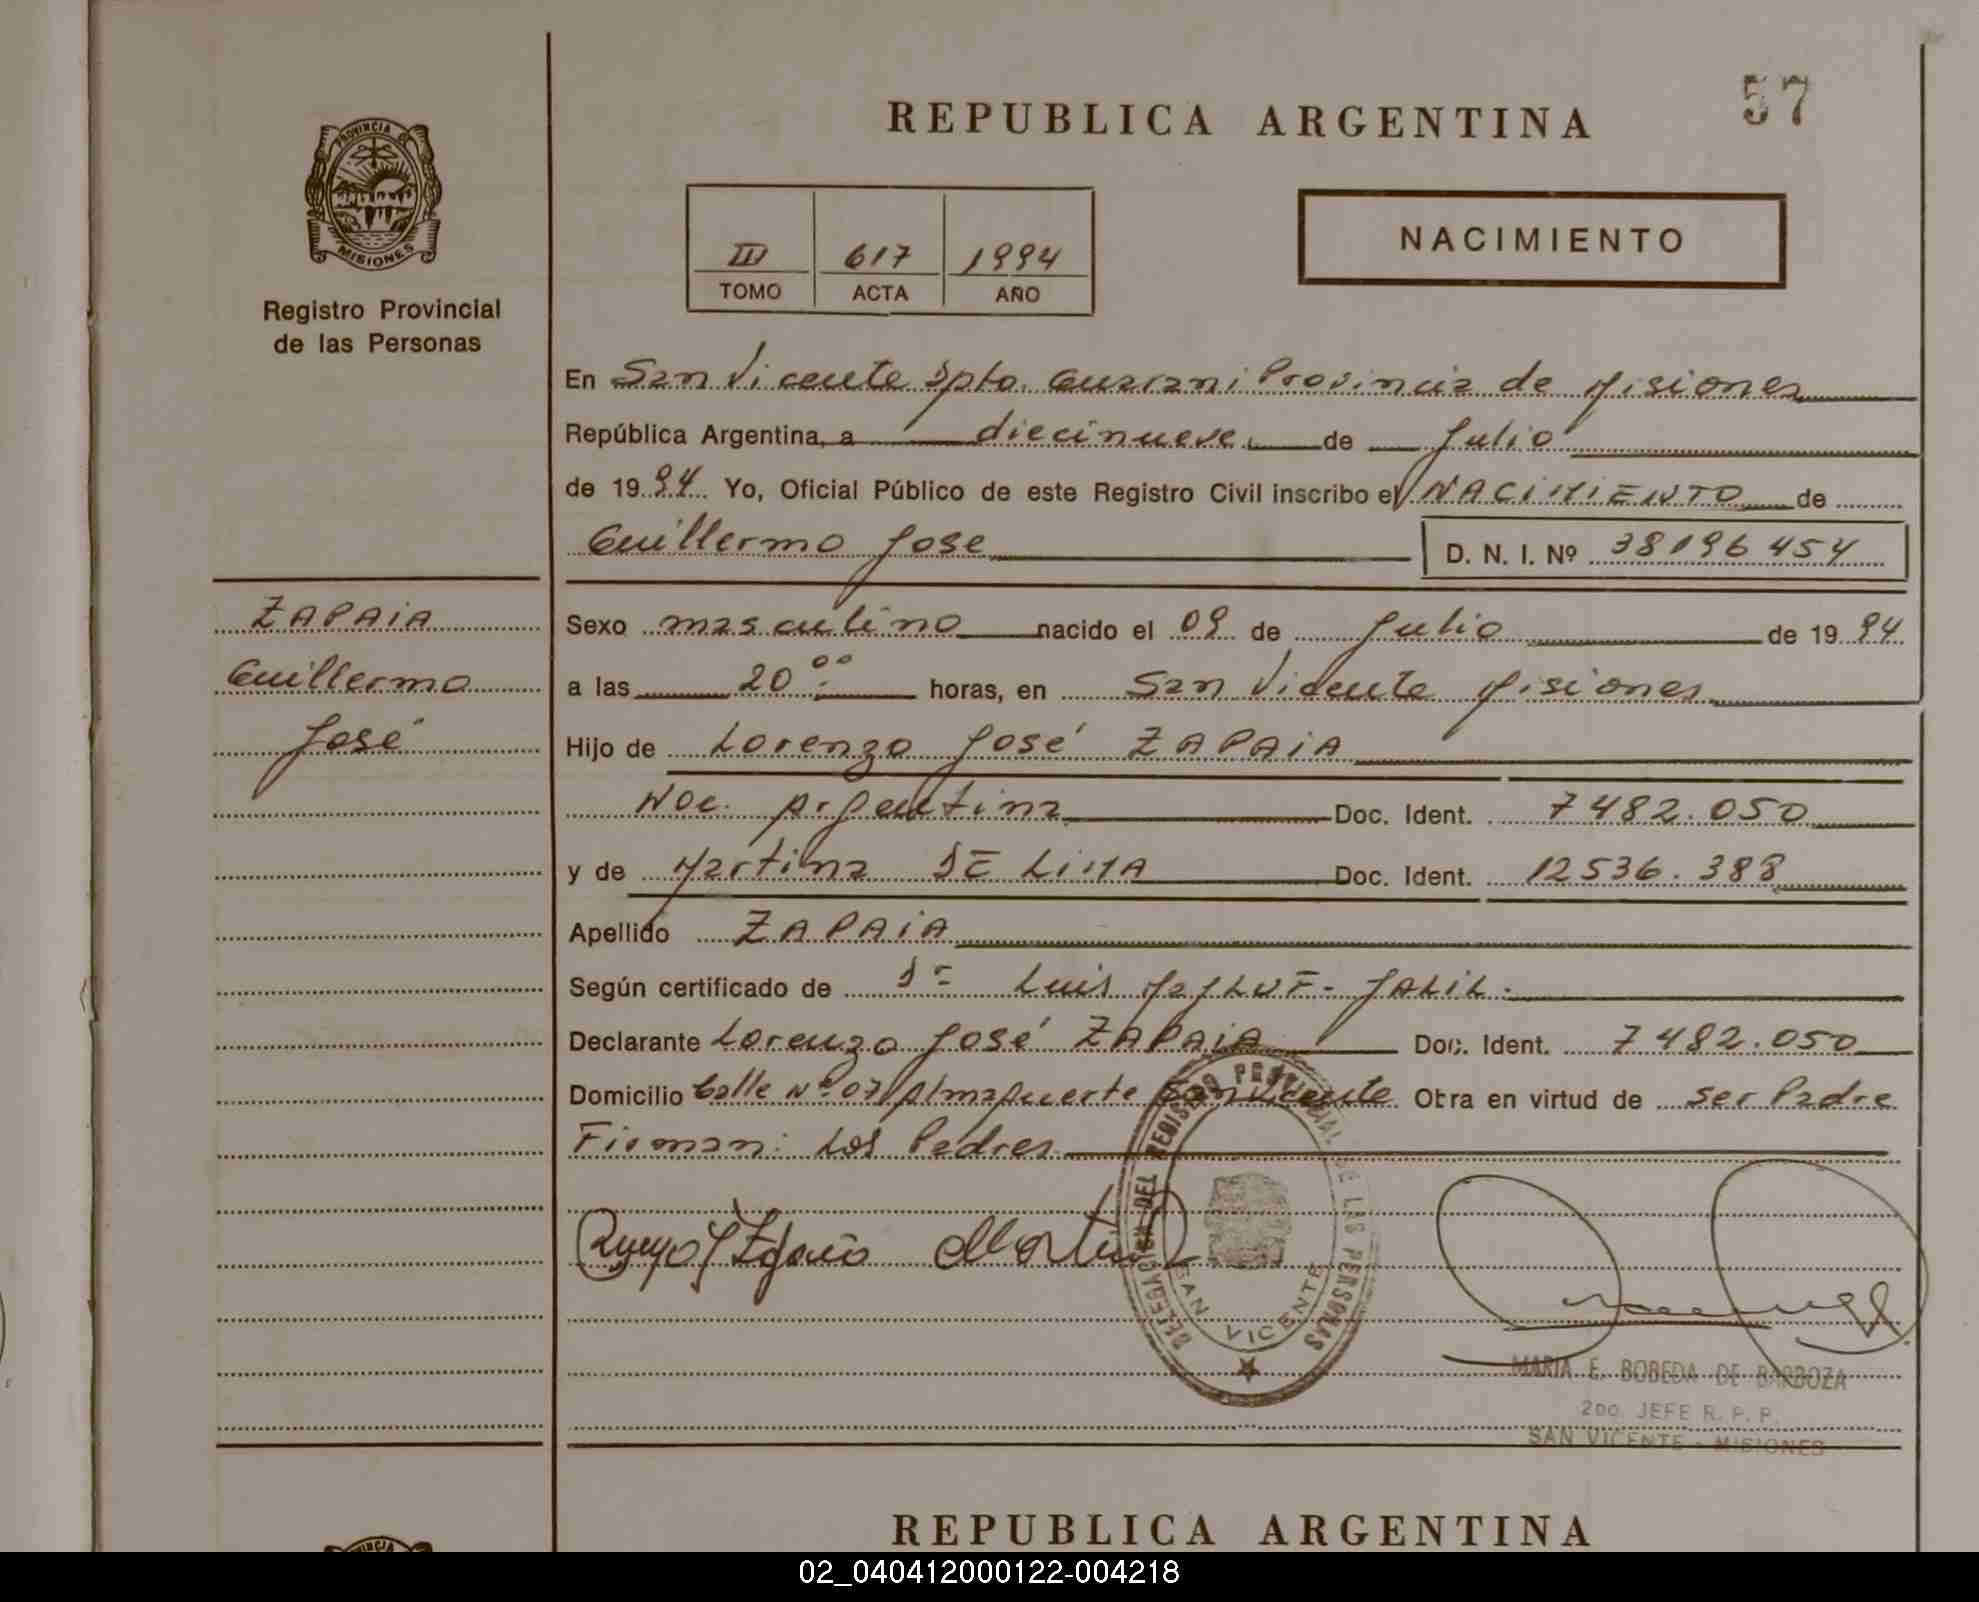 57
REPUBLICA ARGENTINA
PROVINCIA DE MISIONES
Registro Provincial
de las Personas
III 617 1994
TOMO ACTA AÑO
NACIMIENTO
En San Vicente Dpto. Guarani Provincia de Misiones
República Argentina, a diecinueve de Julio
de 1994 Yo, Oficial Público de este Registro Civil inscribo el NACIMIENTO de
Guillermo Jose D. N. I. Nº 38196454
ZAPAIA
Guillermo
José
Sexo masculino nacido el 09 de Julio de 1994
a las 20:00 horas, en San Vicente Misiones
Hijo de Lorenzo José ZAPAIA
Nac. Argentina Doc. Ident. 7482.050
y de Martina DE LIMA Doc. Ident. 12536.388
Apellido ZAPAIA
Según certificado de Dr Luis JALIL.
Declarante Lorenzo José ZAPAIA Doc. Ident. 7482.050
Domicilio Calle Nº 07 Almafuerte San Vicente Obra en virtud de ser Padre
Firman: Los Padres
DELEGACION DEL REGISTRO PROVINCIAL DE LAS PERSONAS
SAN VICENTE
MARIA E. BOBEDA DE BARBOZA
2do. JEFE R. P. P.
SAN VICENTE - MISIONES
REPUBLICA ARGENTINA
02_040412000122-004218